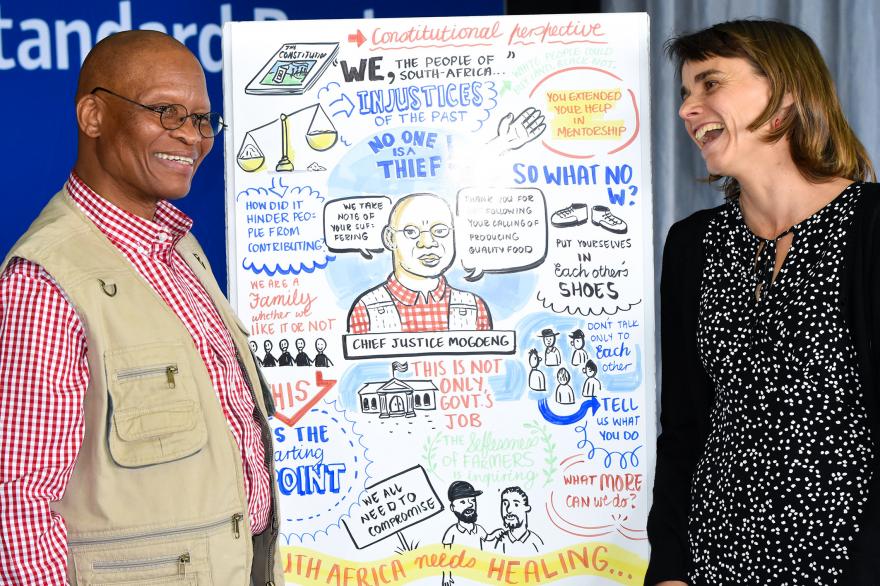 tandard B
Constitutional perspective
THE CONSTITUTION
"WE, THE PEOPLE OF
SOUTH-AFRICA..."
WHITE PEOPLE COULD
BLACK NOT.
INJUSTICES
OF THE PAST
YOU EXTENDED
YOUR HELP
IN
MENTORSHIP
NO ONE
IS A
THIEF!
SO WHAT NO
W?
HOW DID IT
HINDER PEO-
PLE FROM
CONTRIBUTING.
WE TAKE
NOTE OF
YOUR SUF-
FERING
THANK YOU FOR
FOLLOWING
YOUR CALLING OF
PRODUCING
QUALITY FOOD
PUT YOURSELVES
IN
Each other's
SHOES
WE ARE A
Family
whether we
LIKE IT OR NOT
CHIEF JUSTICE MOGOENG
DON'T TALK
ONLY TO
Each
other
THIS IS NOT
ONLY,
GOVT.'S
JOB
HIS
S THE
arting
POINT
TELL
US WHAT
YOU DO
THE Selflessness
OF FARMERS
is inspiring
WHAT MORE
CAN we do?
WE ALL
NEED TO
COMPROMISE
UTH AFRICA needs HEALING...